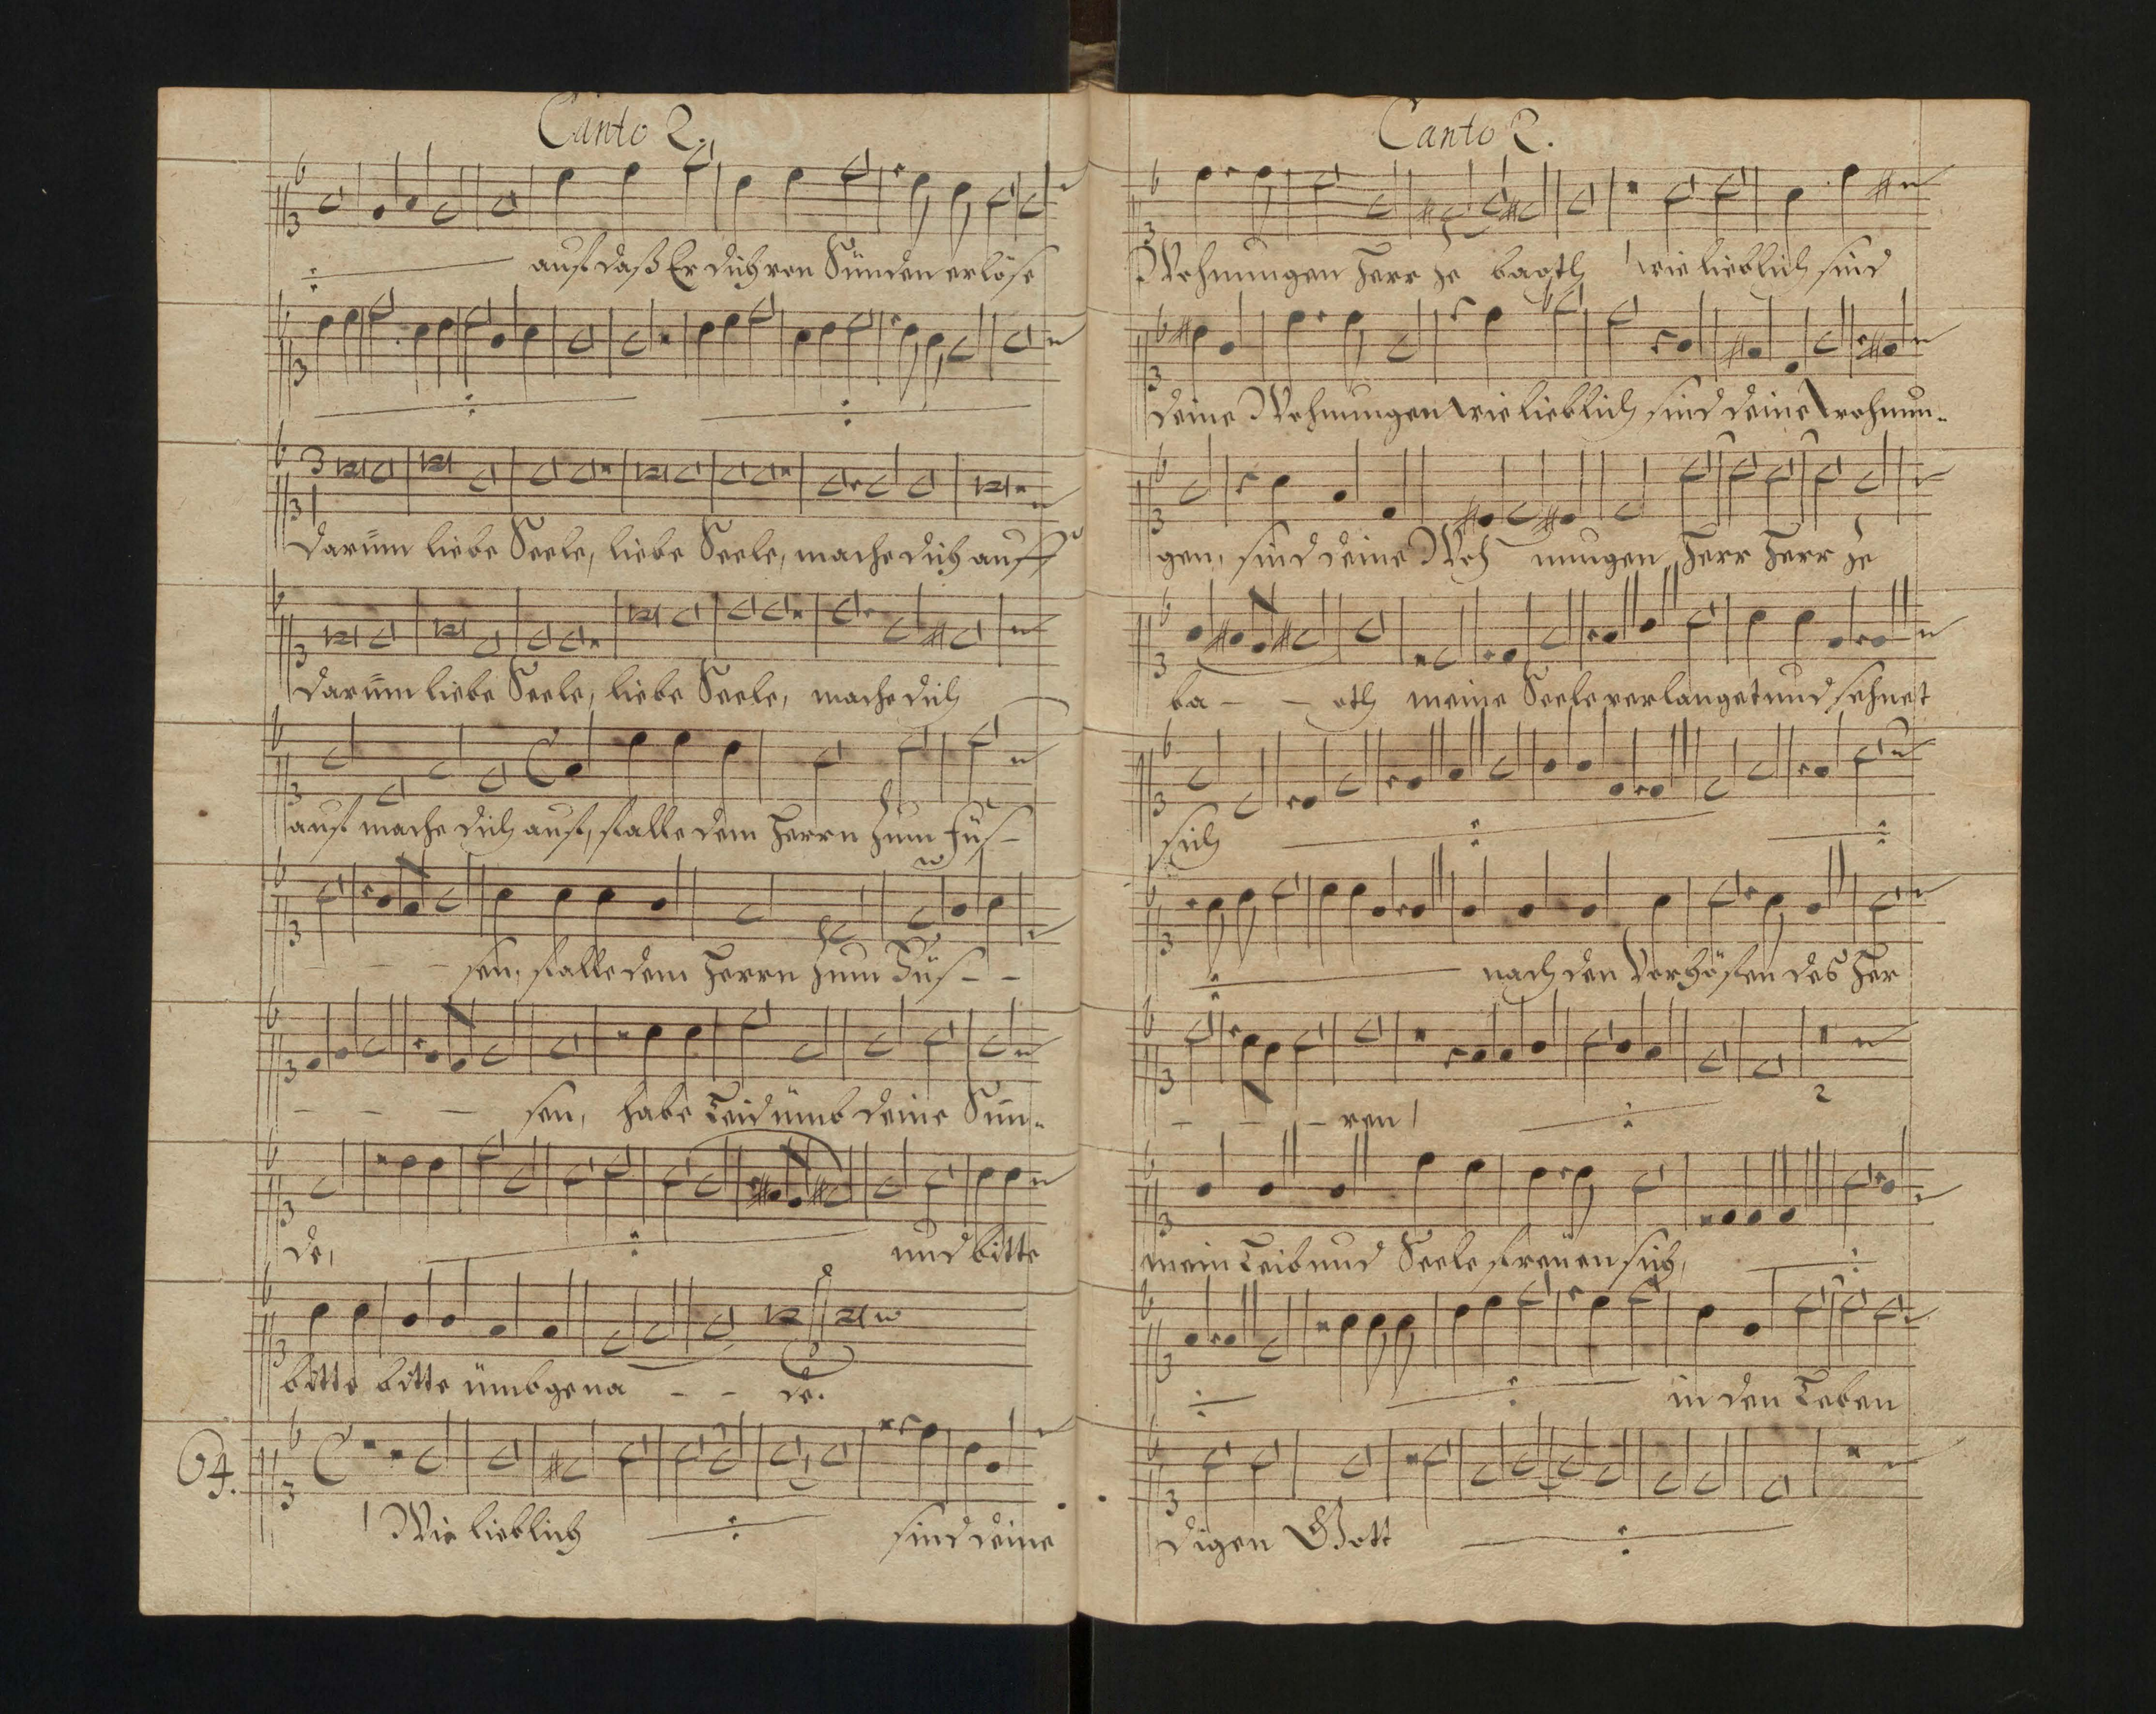 Canto 2.
auf daß Er dich von Sünden erlöse
Darumm liebe Seele, liebe Seele, mache dich auff
Darumm liebe Seele, liebe Seele, mache dich
auf mache dich auf, falle dem Herrn zum Füs-
- - - sen, falle dem Herrn zum Füs- -
- - - sen, habe Leid umb deine Sün-
de, und bitte
bitte bitte ümb gena - - de.
64.
Wie lieblich sind deine
Canto 2.
Wohnungen Herr Ze baoth wie lieblich sind
deine Wohnungen wie lieblich sind deine wohnun-
gen, sind deine Woh nungen, Herr Herr Ze
ba - - oth meine Seele verlanget und sehnet
sich
nach den Vorhöfen des Her
- - - ren,
2
mein Leib und Seele freuen sich,
in den Leben
digen Gott